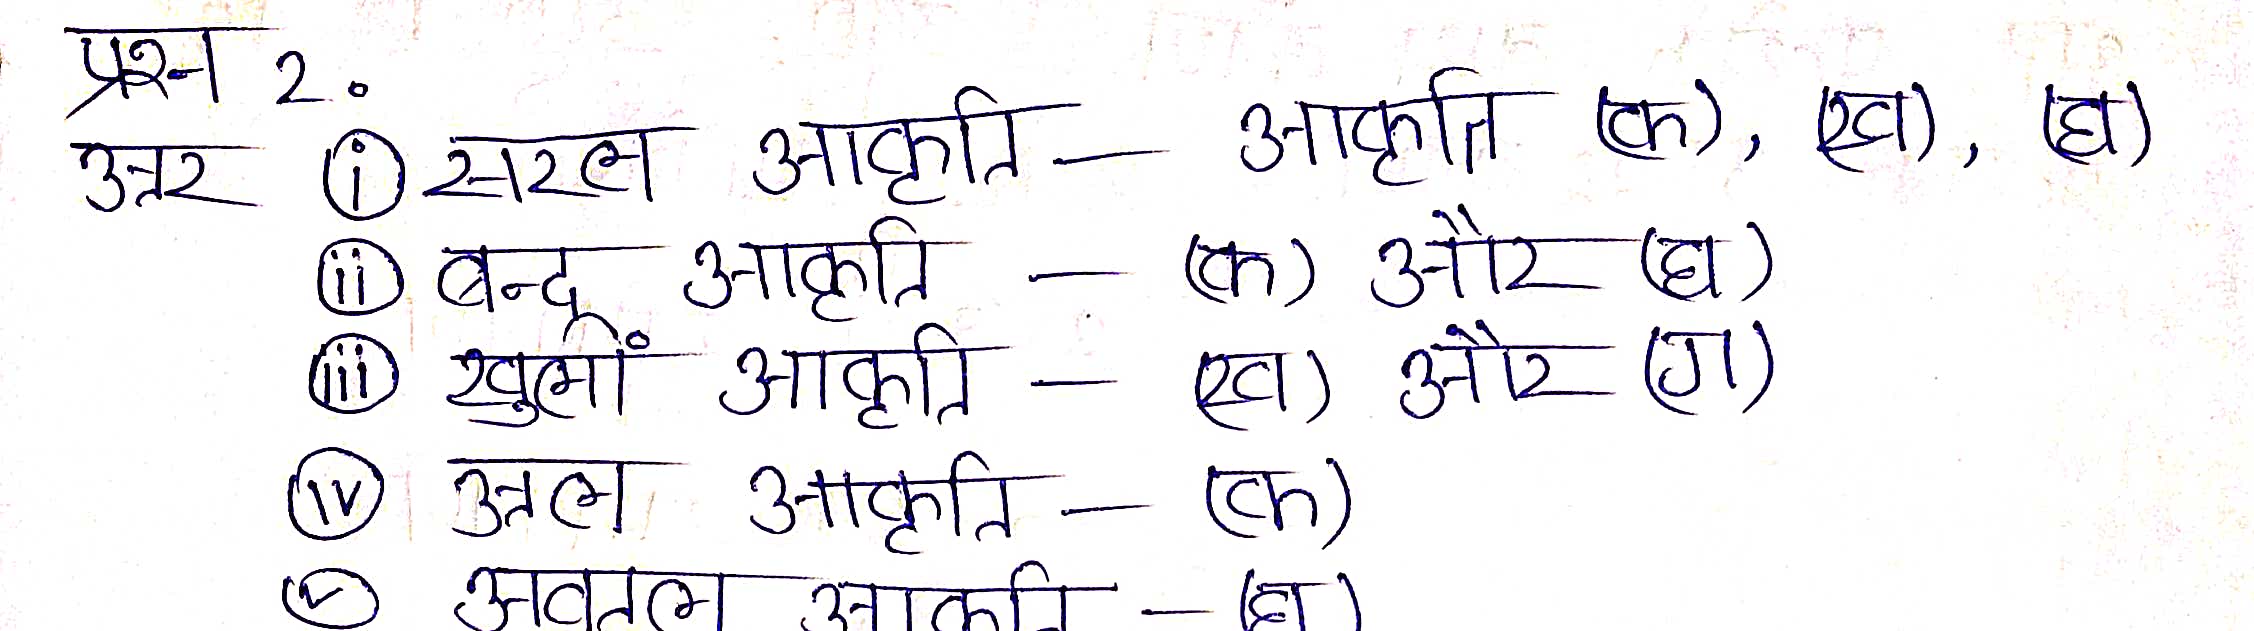 प्रश्न 2.
उत्तर (i) सरल आकृति — आकृति (क), (ख), (घ)
(ii) बन्द आकृति — (क) और (घ)
(iii) खुली आकृति — (ख) और (ग)
(iv) उत्तल आकृति — (क)
(v) अवतल आकृति — (घ)